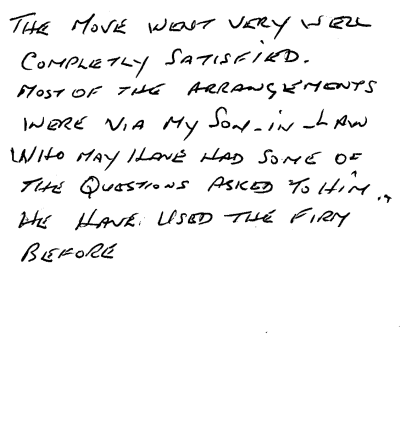 THE MOVE WENT VERY WELL
COMPLETLY SATISFIED.
MOST OF THE ARRANGEMENTS
WERE VIA MY SON-IN-LAW
WHO MAY HAVE HAD SOME OF
THE QUESTIONS ASKED TO HIM..
WE HAVE USED THE FIRM
BEFORE